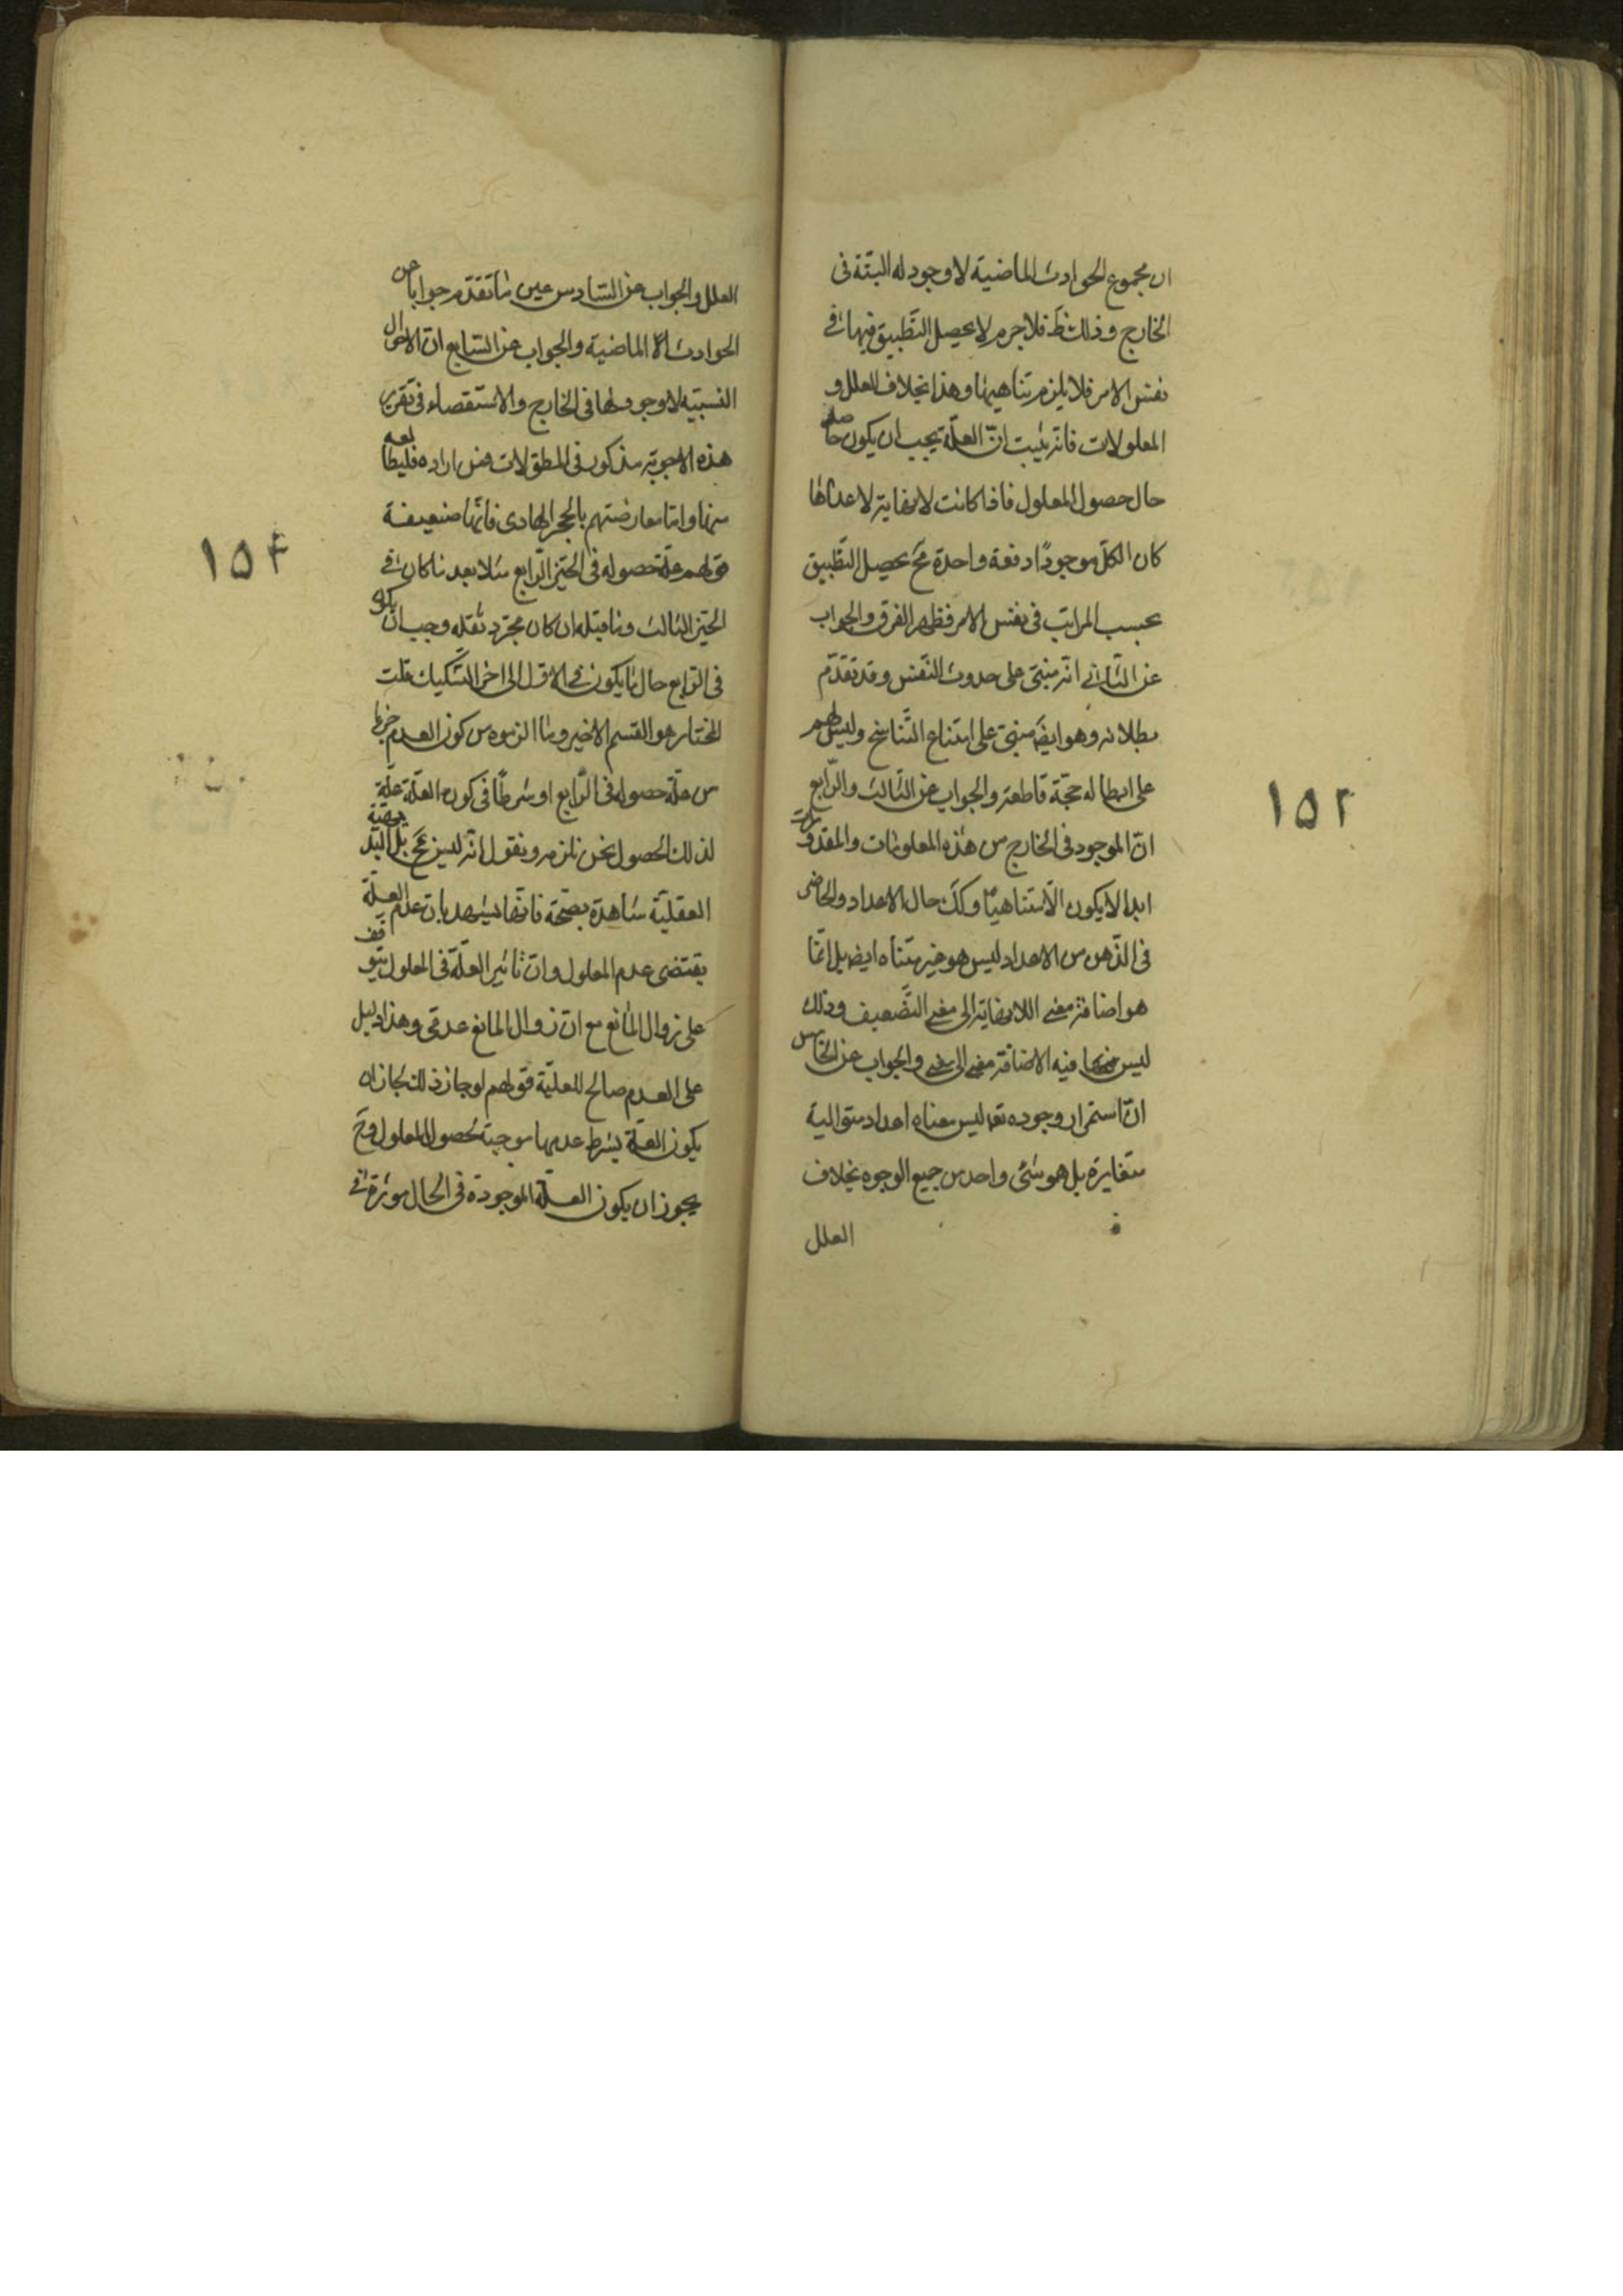 ان مجموع الحوادث الماضية لا وجود له البتة فى
الخارج وذلك ظَ فلا جرم لا يحصل التطبيق فيها فى
نفس الامر فلا يلزم تناهيها وهذا بخلاف العلل و
المعلولات فانه يثبت انّ العلّة يجب ان يكون حاصلة
حال حصول المعلول فاذا كانت لا نهاية لاعدادها
كان الكلّ موجودًا دفعة واحدة فحَ يحصل التّطبيق
بحسب المراتب فى نفس الامر فظهر الفرق والجواب
عن الثانى انّه مبنىّ على حدوث النّفس وقد تقدّم
بطلانه وهو ايضَ مبنىّ على امتناع التّناسخ وليس لهم
على ابطاله حجّة قاطعة والجواب عن الثّالث والرّابع
انّ الموجود فى الخارج من هذه المعلومات والمقدورات
ابدا لا يكون الّا متناهيًا وكك حال الاعداد والحاضر
فى الذّهن من الاعداد ليس هو غير متناه ايضَ بل انّما
هو اضافة معنى اللانهاية الى معنى التّضعيف وذلك
ليس فيه الا اضافة معنى الى معنى والجواب عن الخامس
انّ استمرار وجوده تعَ ليس معناه اعداد متوالية
متغايرة بل هو شئ واحد من جميع الوجوه بخلاف
العلل
١٥٢
العلل والجواب عن السّادس عين ما تقدّم جوابا عن
الحوادث الماضية والجواب عن السّابع انّ الاحوال
النسبيّة لا وجود لها فى الخارج والاستقصاء فى تقرير
هذه الاجوبة مذكور فى المطوّلات فمن اراده فليطالعه
منها وامّا معارضتهم بالحجر الهاوى فانّها ضعيفة
قولهم علّة حصوله فى الحيّز الرّابع مثلا بعد ما كان فى
الحيّز الثالث وما قبله ان كان مجرّد ثقله وجب ان يكون
فى الرّابع حال ما يكون فى الاوّل الى اخر التّشكيك قلت
المختار هو القسم الاخير وما الزموه من كون العدم جزءا
من علّة حصوله فى الرّابع او شرطًا فى كون العلّة علّة
لذلك الحصول نحن نلزمه ونقول انّه ليس بمحَ بل البديهة
العقليّة شاهدة بصحّته فانّها يشهد بان عدم العلّة
يقتضى عدم المعلول وان تأثير العلّة فى المعلول يتوقف
على زوال المانع مع ان زوال المانع عدمى وهذا دليل
على العدم صالح للعليّة قولهم لو جاز ذلك لجاز ان
يكون العلّة بشرط عدمها موجبة لحصول المعلول وحَ
يجوز ان يكون العلّة الموجودة فى الحال موثرة فى
١٥٤